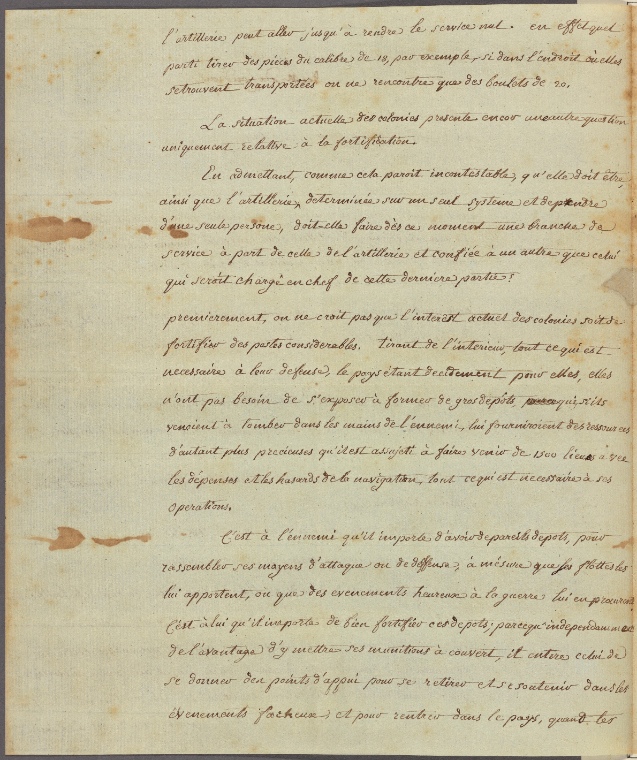 l'artillerie peut aller jusqu'à rendre le service nul. en effet quel
parti tirer des pieces du calibre de 18, par exemple, si dans l'endroit où elles
se trouvent transportées on ne rencontre que des boulets de 20.
La situation actuelle des colonies presente encor une autre question
uniquement relative à la fortification.
En admettant, comme cela paroit incontestable, qu'elle doit être,
ainsi que l'artillerie, determinée sur un seul systeme et dependre
d'une seule persone, doit-elle faire dès ce moment une branche de
service à part de celle de l'artillerie et confiée à un autre que celui
qui seroit chargé en chef de cette derniere partie?
premierement, on ne croit pas que l'interest actuel des colonies soit de
fortifier des postes considerables. tirant de l'interieur, tout ce qui est
necessaire à leur defense, le pays étant decidement pour elles, elles
n'ont pas besoin de s'exposer à former de gros depôts, qui, s'ils
venoient à tomber dans les mains de l'ennemi, lui fourniroient des ressources
d'autant plus precieuses qu'il est assujeti à faire venir de 1500 lieues à
les dépenses et les hasards de la navigation, tout ce qui est necessaire à ses
operations.
C'est à l'ennemi qu'il importe d'avoir de pareils depots, pour
rassembler ses moyens d'attaque ou de deffense, à mésure que ses flottes les
lui apportent, ou que des evenements heureux à la guerre lui en procurent
C'est à lui qu'il importe de bien fortifier ces depots; parcequ'independamment
de l'avantage d'y mettre ses munitions à couvert, il en tire celui de
se donner des points d'appui pour se retirer et se soutenir dans les
évenements facheux; et pour rentrer dans le pays, quand les